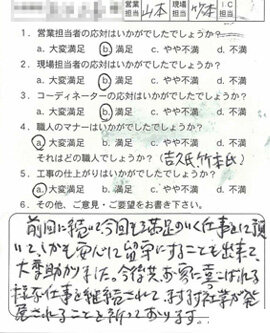 営業担当 山本 現場担当 竹本 IC担当
1. 営業担当者の応対はいかがでしたでしょうか?
a. 大変満足 b. 満足 c. やや不満 d. 不満
2. 現場担当者の応対はいかがでしたでしょうか?
a. 大変満足 b. 満足 c. やや不満 d. 不満
3. コーディネーターの応対はいかがでしたでしょうか?
a. 大変満足 b. 満足 c. やや不満 d. 不満
4. 職人のマナーはいかがでしたでしょうか?
a. 大変満足 b. 満足 c. やや不満 d. 不満
それはどの職人でしょうか? (吉久氏 竹本氏)
5. 工事の仕上がりはいかがでしたでしょうか?
a. 大変満足 b. 満足 c. やや不満 d. 不満
6. その他、ご意見・ご要望をお書き下さい。
前回に続いて今回も満足のいく仕事をして頂
いて、しかも安心して留守にすることも出来て、
大変助かりました。今後共お客に喜こばれる
様な仕事を継続されて、益々社業が発
展されることを祈っております。